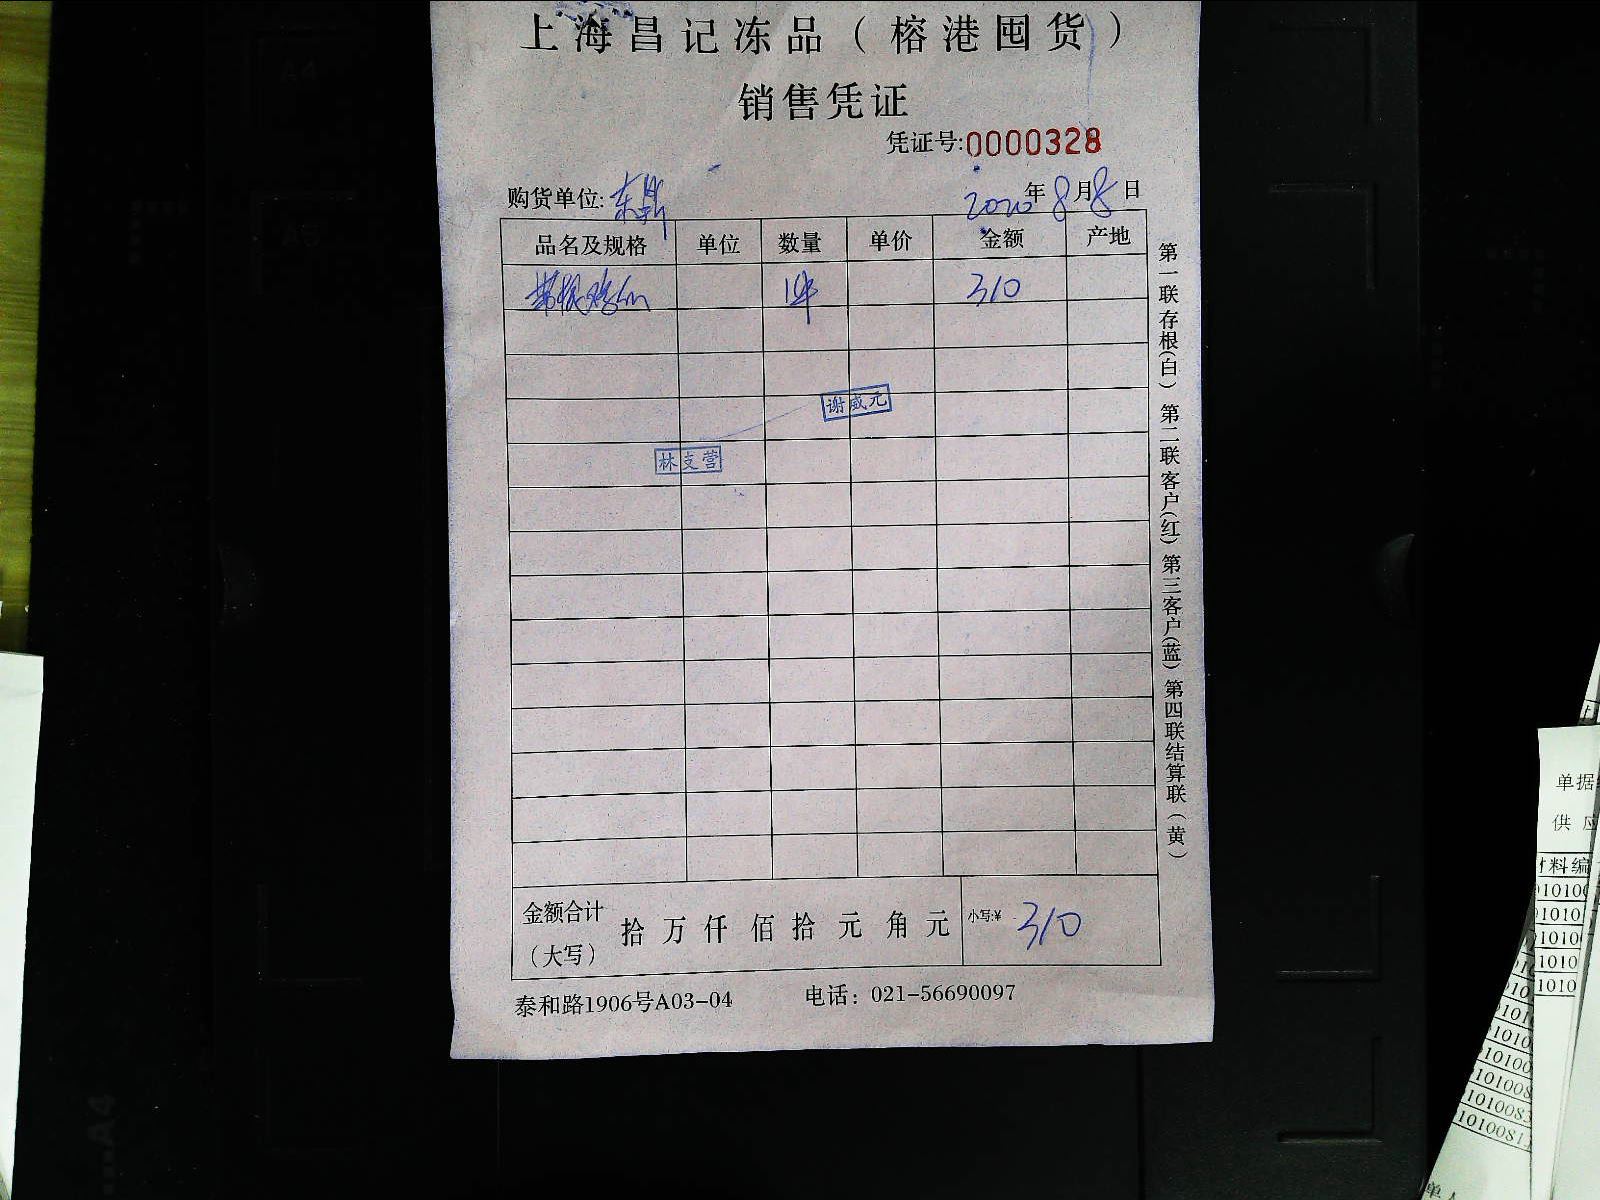 上海昌记冻品（榕港囤货）
销售凭证
凭证号:0000328
购货单位: 东 2020年8月8日
品名及规格 单位 数量 单价 金额 产地
1件 310
谢威元
林支营
金额合计（大写） 拾 万 仟 佰 拾 元 角 元 小写:¥ 310
泰和路1906号A03-04 电话：021-56690097
第一联存根(白) 第二联客户(红) 第三客户(蓝) 第四联结算联(黄)
A4
A5
A4
单据
供 应
材料编